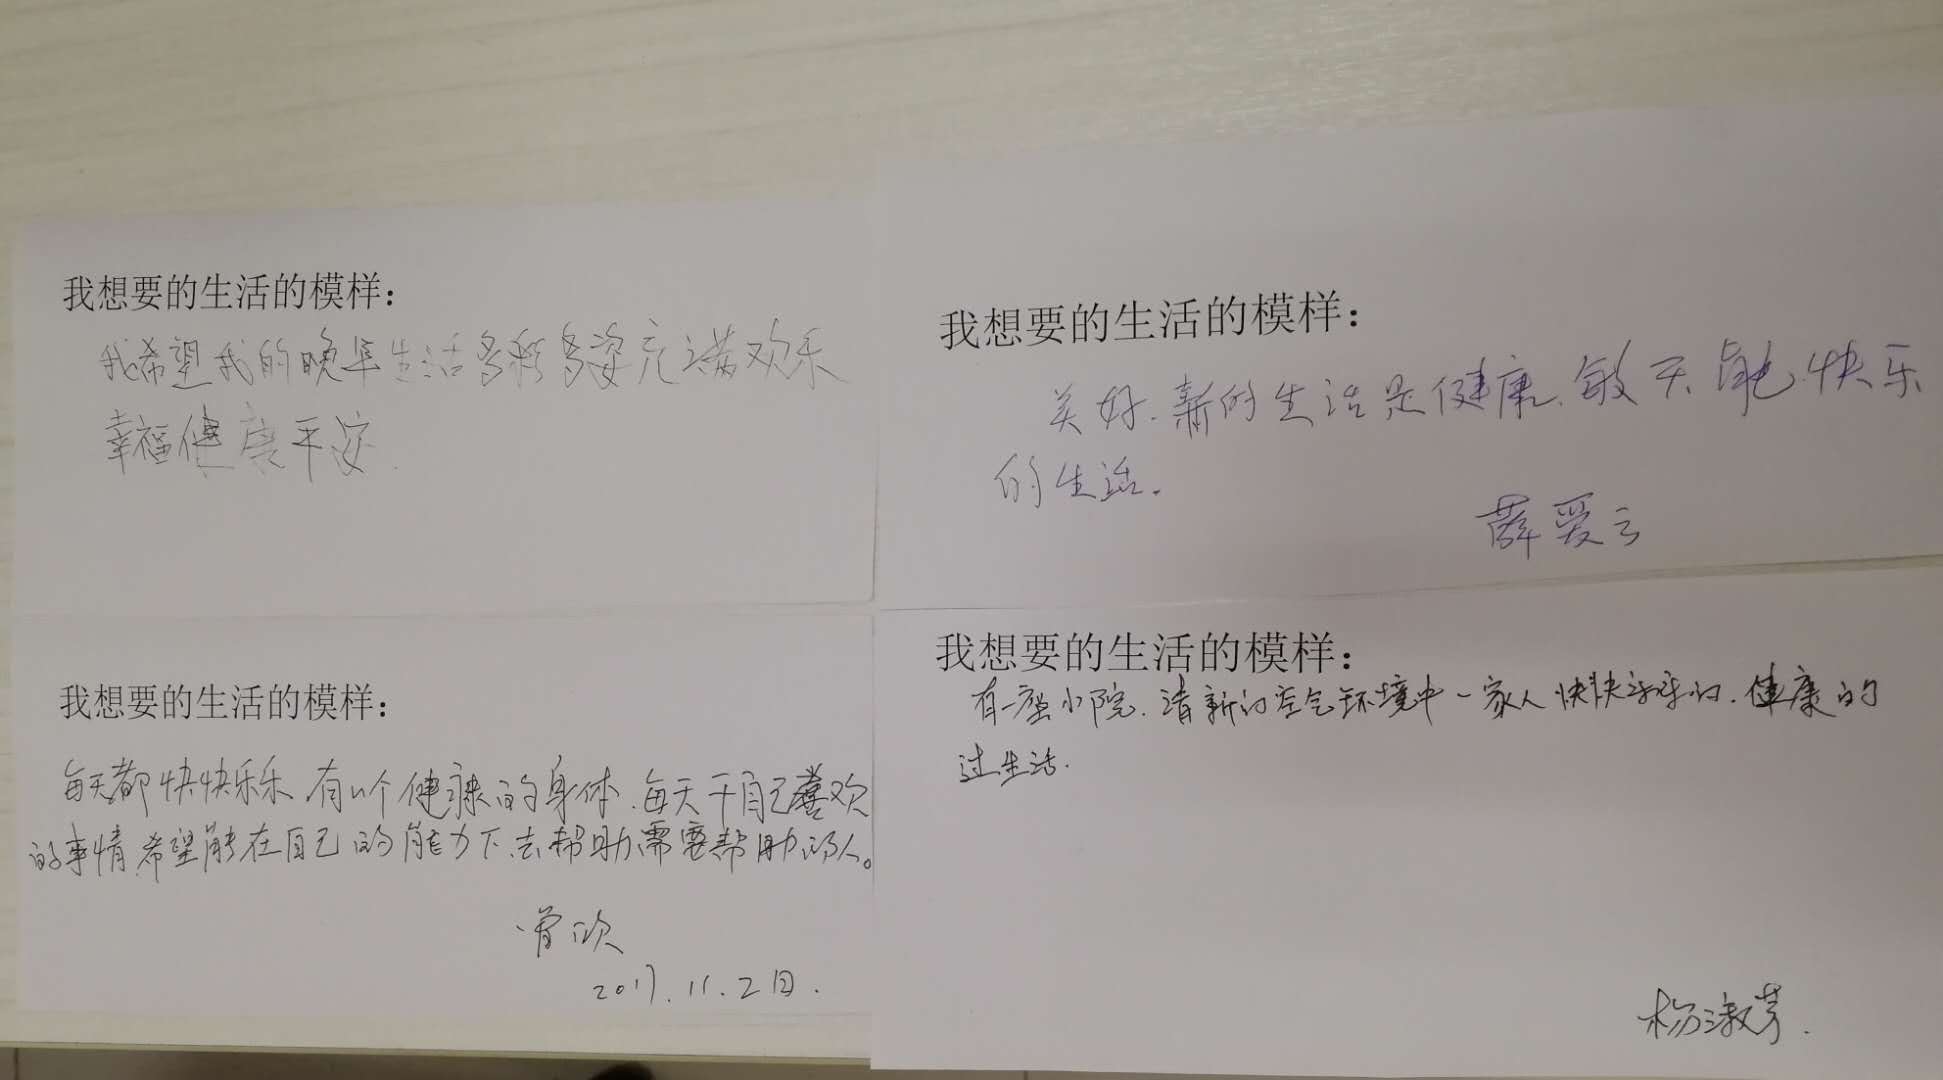 我想要的生活的模样：
我希望我的晚年生活多彩多姿充满欢乐
幸福健康平安.
我想要的生活的模样：
美好.新的生活是健康.每天能快乐
的生活.
薛爱云
我想要的生活的模样：
每天都快快乐乐.有一个健康的身体.每天干自己喜欢
的事情.希望能在自己的能力下.去帮助需要帮助的人。
2017.11.2日.
我想要的生活的模样：
有一座小院.清新的空气环境中一家人快快乐乐的.健康的
过生活.
杨淑芳.